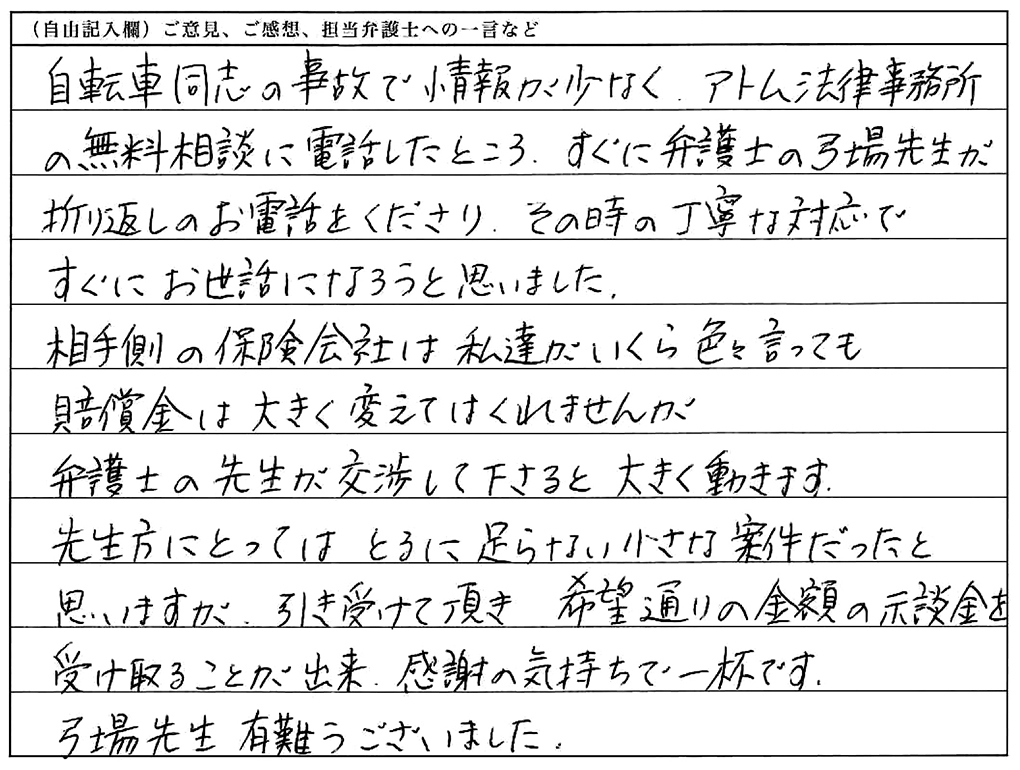 （自由記入欄）ご意見、ご感想、担当弁護士への一言など
自転車同志の事故で情報が少なく、アトム法律事務所
の無料相談に電話したところ、すぐに弁護士の弓場先生が
折り返しのお電話をくださり、その時の丁寧な対応で
すぐにお世話になろうと思いました。
相手側の保険会社は私達がいくら色々言っても
賠償金は大きく変えてはくれませんが
弁護士の先生が交渉して下さると大きく動きます。
先生方にとってはとるに足らない小さな案件だったと
思いますが、引き受けて頂き 希望通りの金額の示談金を
受け取ることが出来、感謝の気持ちで一杯です。
弓場先生 有難うございました。